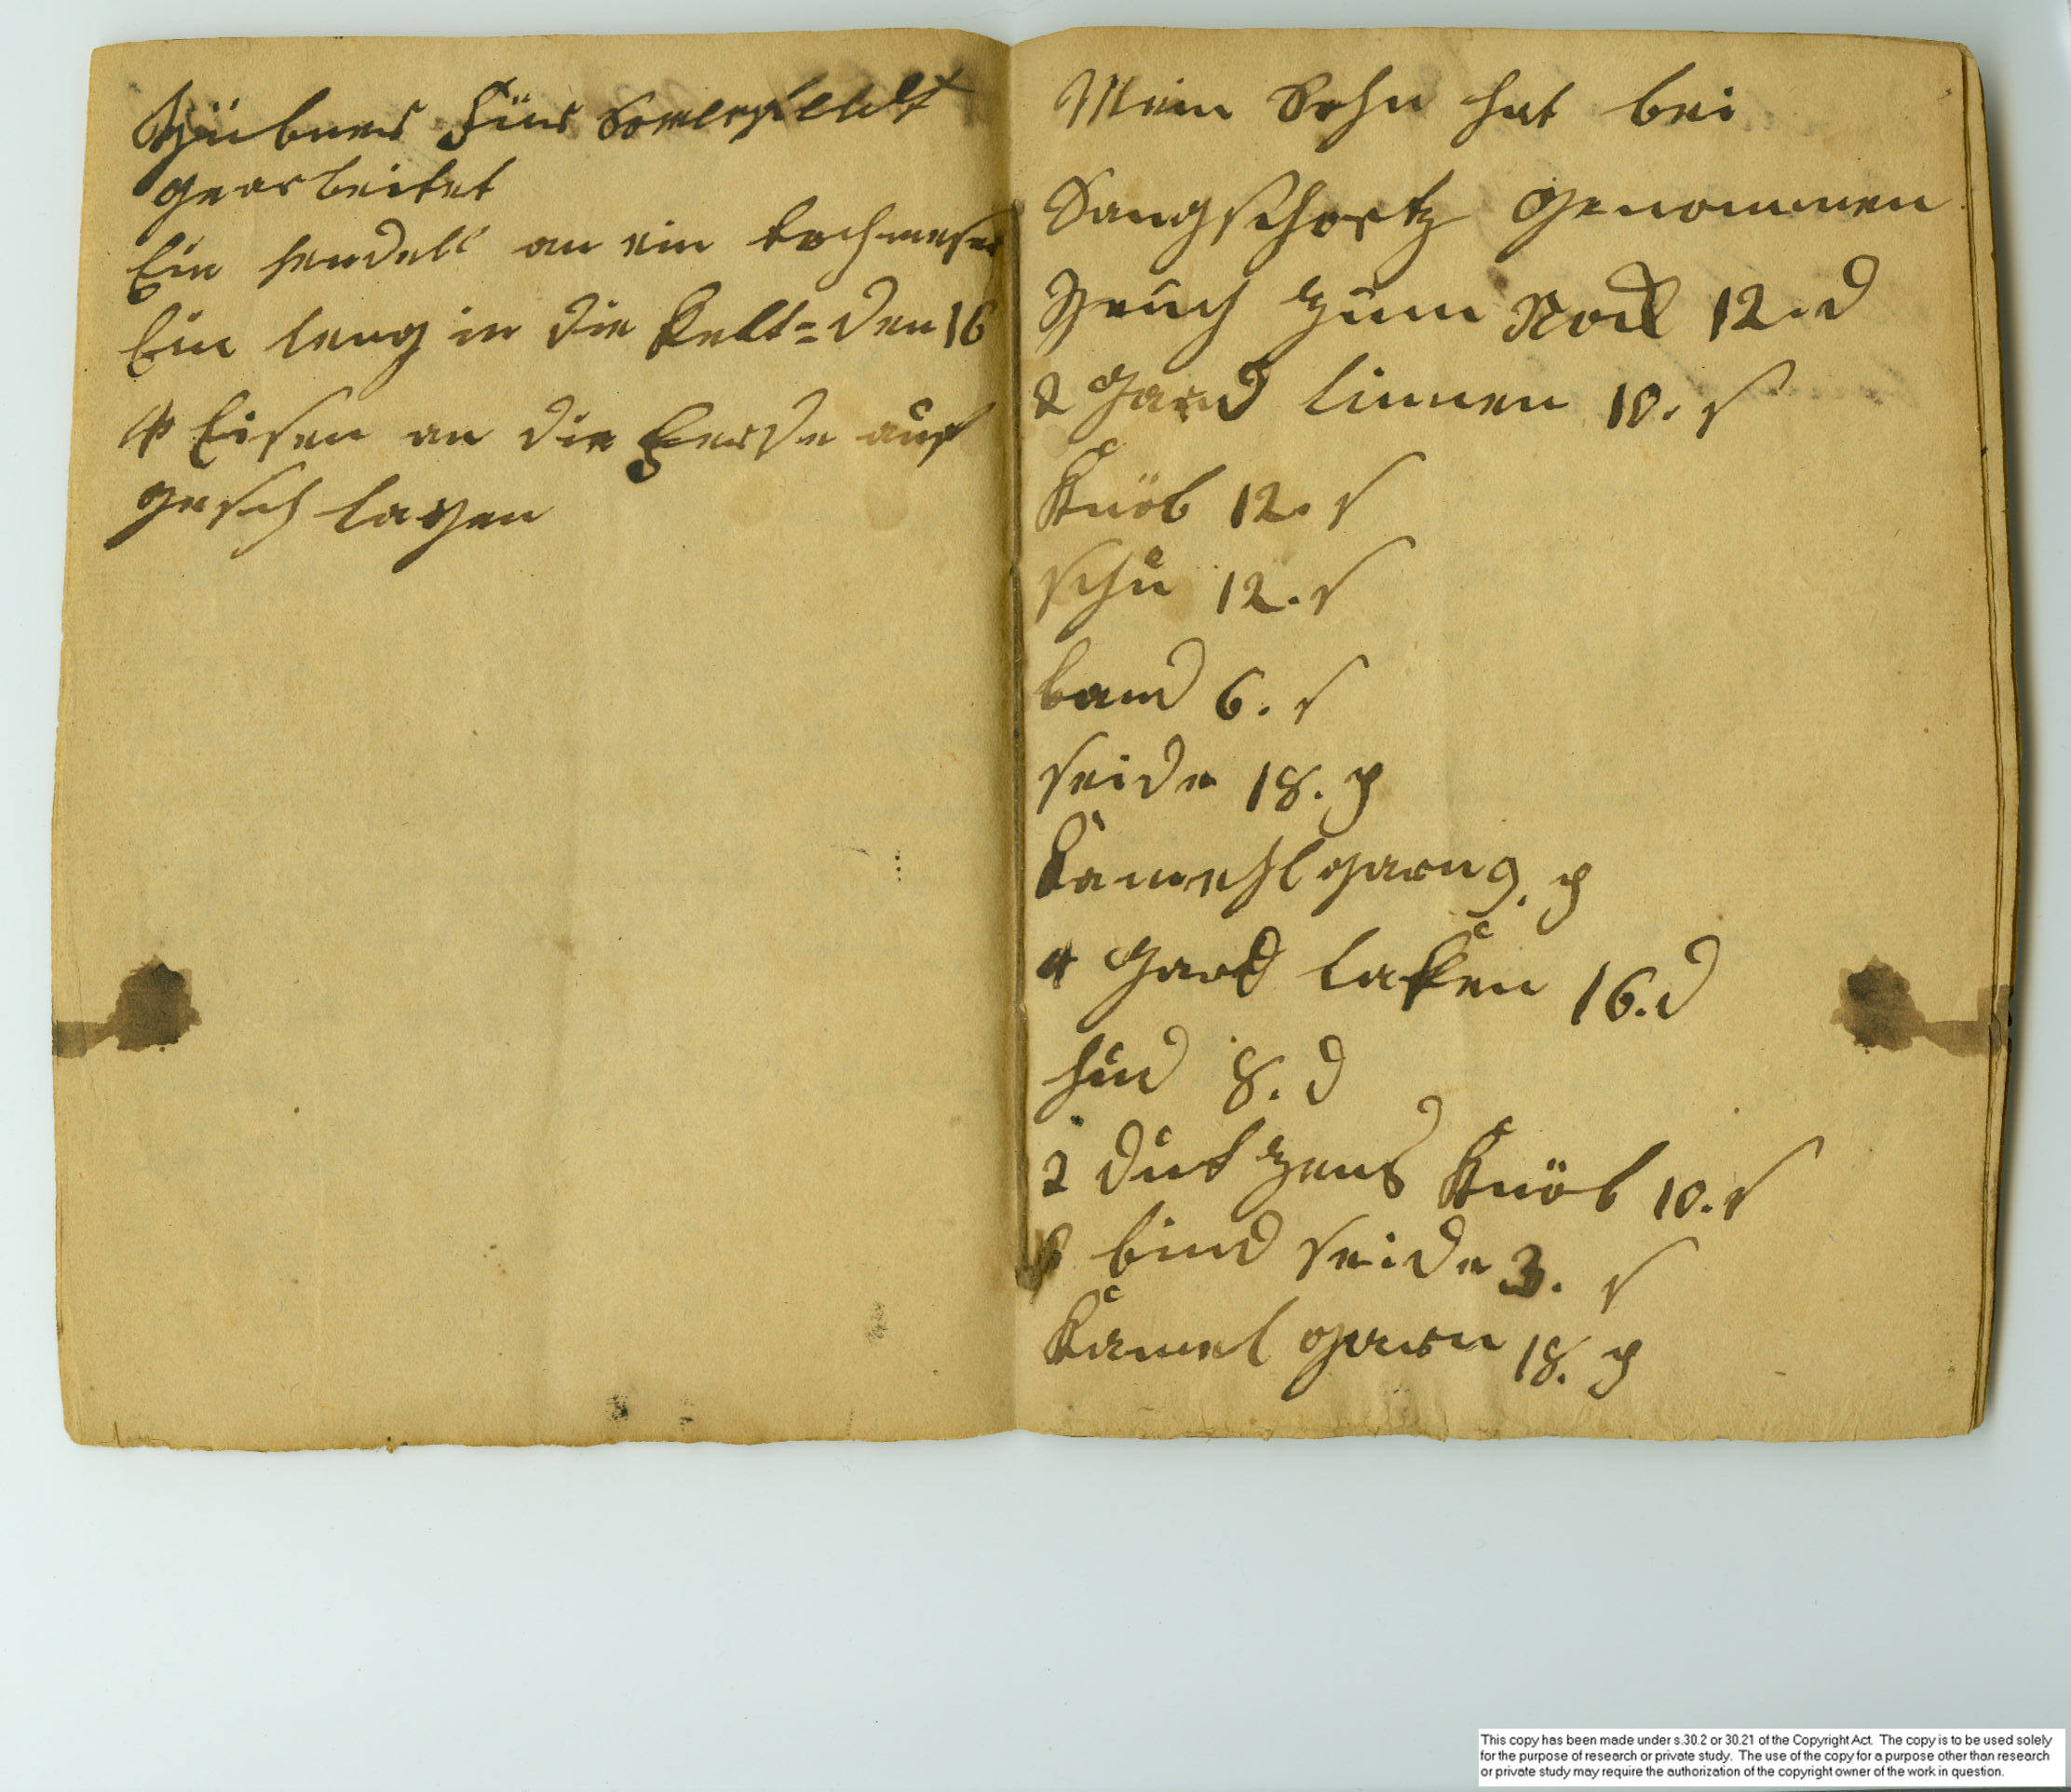 Hübner für
gearbeitet
Ein hendell an ein
Ein leng in die Kelt= den 16
4 Eisen an die Ferde auf
gesch lagen
Mein Sohn hat bei
Sangschortz genommen
Zeuch zum Rock 12. d
2 Jard linnen 10. s
Knöb 12. s
schu 12. s
band 6. s
seide 18. p
Kamehlgarn 9. p
4 Jard laken 16. d
hud 8. d
2 dutzens Knöb 10. s
bind seide 3. s
Kamel garn 18. p
This copy has been made under s.30.2 or 30.21 of the Copyright Act. The copy is to be used solely
for the purpose of research or private study. The use of the copy for a purpose other than research
or private study may require the authorization of the copyright owner of the work in question.